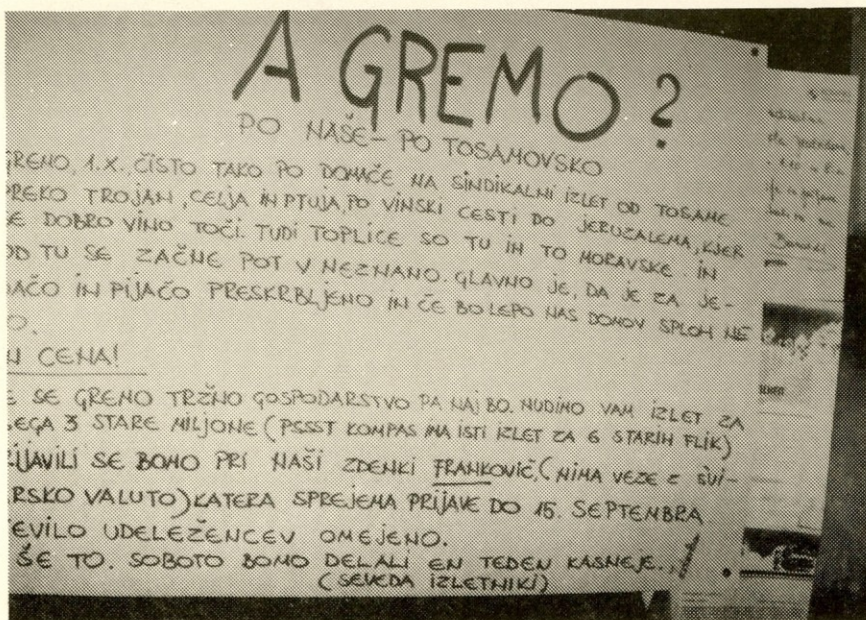 A GREMO?
PO NAŠE - PO TOSAMOVSKO
GREMO, 1.X., ČISTO TAKO PO DOMAČE NA SINDIKALNI IZLET OD TOSAME
PREKO TROJAN, CELJA IN PTUJA, PO VINSKI CESTI DO JERUZALEMA, KJER
SE DOBRO VINO TOČI. TUDI TOPLICE SO TU IN TO MORAVSKE. IN
OD TU SE ZAČNE POT V NEZNANO. GLAVNO JE, DA JE ZA JE-
DAČO IN PIJAČO PRESKRBLJENO IN ČE BO LEPO NAS DOMOV SPLOH NE
O.
N CENA!
E SE GREMO TRŽNO GOSPODARSTVO PA NAJ BO. NUDIMO VAM IZLET ZA
SEGA 3 STARE MILJONE (PSSST KOMPAS IMA ISTI IZLET ZA 6 STARIH FLIK)
RIJAVILI SE BOMO PRI NAŠI ZDENKI FRANKOVIČ, (NIMA VEZE Z ŠVI-
ARSKO VALUTO) KATERA SPREJEMA PRIJAVE DO 15. SEPTEMBRA.
EVILO UDELEŽENCEV OMEJENO.
ŠE TO. SOBOTO BOMO DELALI EN TEDEN KASNEJE..
(SEVEDA IZLETNIKI)